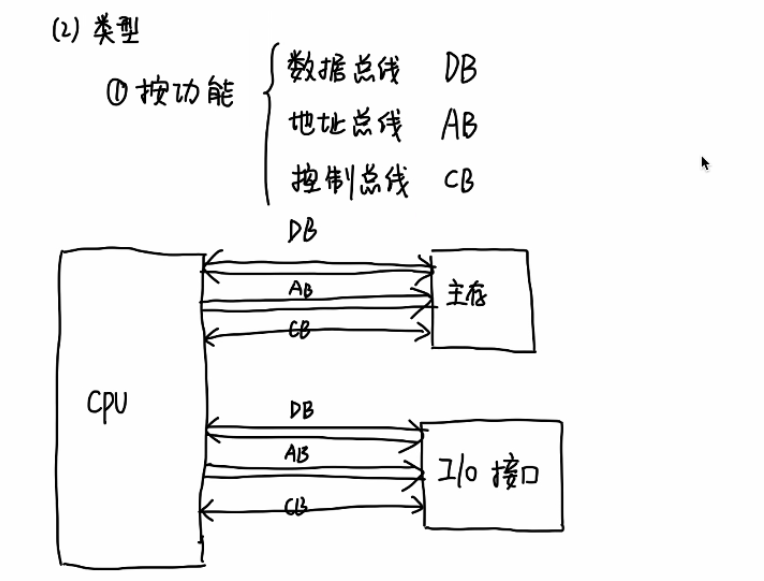 (2) 类型
① 按功能
数据总线 DB
地址总线 AB
控制总线 CB
DB
AB
主存
CB
CPU
DB
AB
I/O 接口
CB